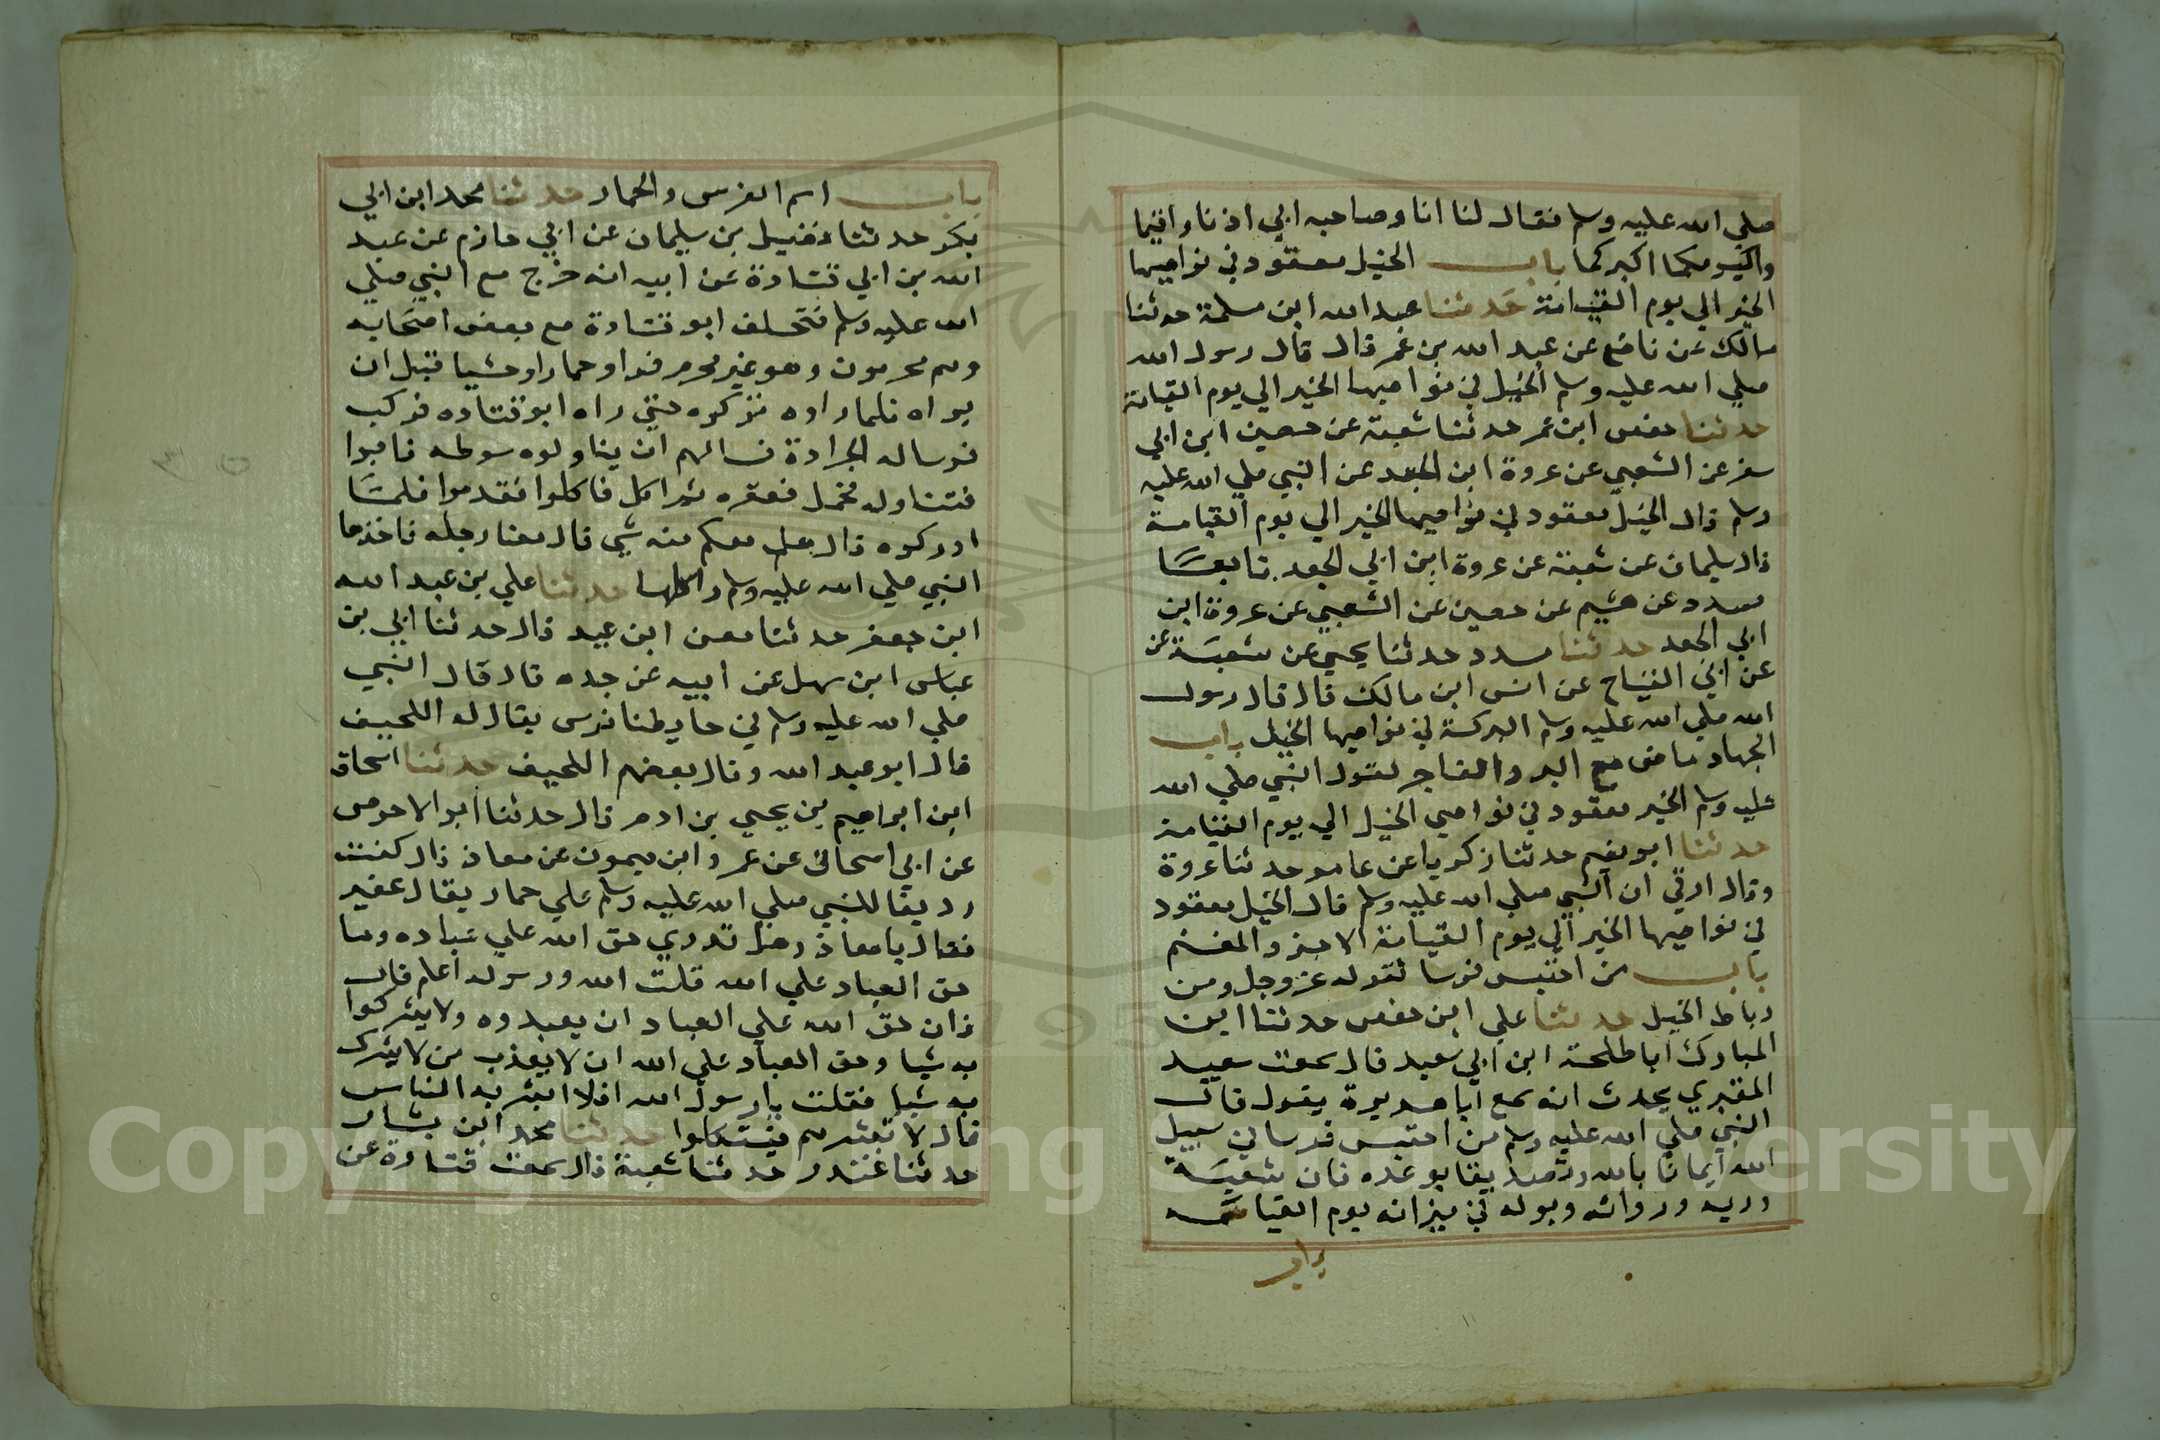 صلي الله عليه وسلم فقال لنا انا وصاحبه ابي اذنا واقيما
واليومكما اكبركما باب الخيل معقود في نواصيها
الخير الي يوم القيامة حدثنا عبد الله ابن مسلمة حدثنا
مالك عن نافع عن عبد الله بن عمر قال قال رسول الله
صلي الله عليه وسلم الخيل في نواصيها الخير الي يوم القيامة
حدثنا حفص ابن عمر حدثنا شعبة عن حصين ابن ابي
سفر عن الشعبي عن عروة ابن الجعد عن النبي صلي الله عليه
وسلم قال الخيل معقود في نواصيها الخير الي يوم القيامة
قال سليمان عن شعبة عن عروة ابن ابي الجعد تابعه
مسدد عن هشيم عن حصين عن الشعبي عن عروة ابن
ابي الجعد حدثنا مسدد حدثنا يحيي عن شعبة عن
عن ابي التياح عن انس ابن مالك قال قال رسول
الله صلي الله عليه وسلم البركة في نواصيها الخيل باب
الجهاد ماض مع البر والفاجر لقول النبي صلي الله
عليه وسلم الخير معقود في نواصي الخيل الي يوم القيامة
حدثنا ابو نعيم حدثنا زكريا عن عامر حدثنا عروة
وقال ارقي ان النبي صلي الله عليه وسلم قال الخيل معقود
في نواصيها الخير الي يوم القيامة الاجر والمغنم
باب من احتبس فرسا لقوله عز وجل ومن
رباط الخيل حدثنا علي ابن حفص حدثنا ابن
المبارك ابا طلحة ابن ابي سعيد قال سمعت سعيد
المقبري يحدث انه سمع ابا هريرة يقول قال
النبي صلي الله عليه وسلم من احتبس فرسا في سبيل
الله ايمانا بالله وتصديقا بوعده فان شعبه
وريه وروائه وبوله في ميزانه يوم القيامة
باب
باب اسم الفرس والحمار حدثنا محمد ابن ابي
بكر حدثنا فضيل بن سليمان عن ابي حازم عن عبد
الله بن ابي قتادة عن ابيه انه خرج مع النبي صلي
الله عليه وسلم فتخلف ابو قتادة مع بعض اصحابه
وهم محرمون وهو غير محرم فراو حمارا وحشيا قبل ان
يراه فلما راوه تركوه حتي راه ابو قتاده فركب
فرسا له الجرادة فسالهم ان يناولوه سوطه فابوا
فتناوله فحمل فعقره ثم اكل فاكلوا فقدموا فلما
ادركوه قال هل معكم منه شي قال معنا رجله فاخذها
النبي صلي الله عليه وسلم واكلها حدثنا علي بن عبد الله
ابن جعفر حدثنا معن ابن عيد قال حدثنا ابي بن
عباس ابن سهل عن ابيه عن جده قال قال النبي
صلي الله عليه وسلم في حايطنا فرس يقال له اللحيف
قال ابو عبد الله وقال بعضهم اللحيف حدثنا اسحاق
ابن ابراهيم بن يحيي بن ادم قال حدثنا ابو الاحوص
عن ابي اسحاق عن عمرو ابن ميمون عن معاذ قال كنت
رديفا للنبي صلي الله عليه وسلم علي حمار يقال عفير
فقال يا معاذ وهل تدري حق الله علي عباده وما
حق العباد علي الله قلت الله ورسوله اعلم قال
فان حق الله علي العباد ان يعبدوه ولا يشركوا
به شيا وحق العباد علي الله ان لا يعذب من لا يشرك
به شيا فقلت يا رسول الله افلا ابشر به الناس
قال لا تبشرهم فيتكلوا حدثنا محمد ابن بشار
حدثنا غندر حدثنا شعبة قال سمعت قتادة عن